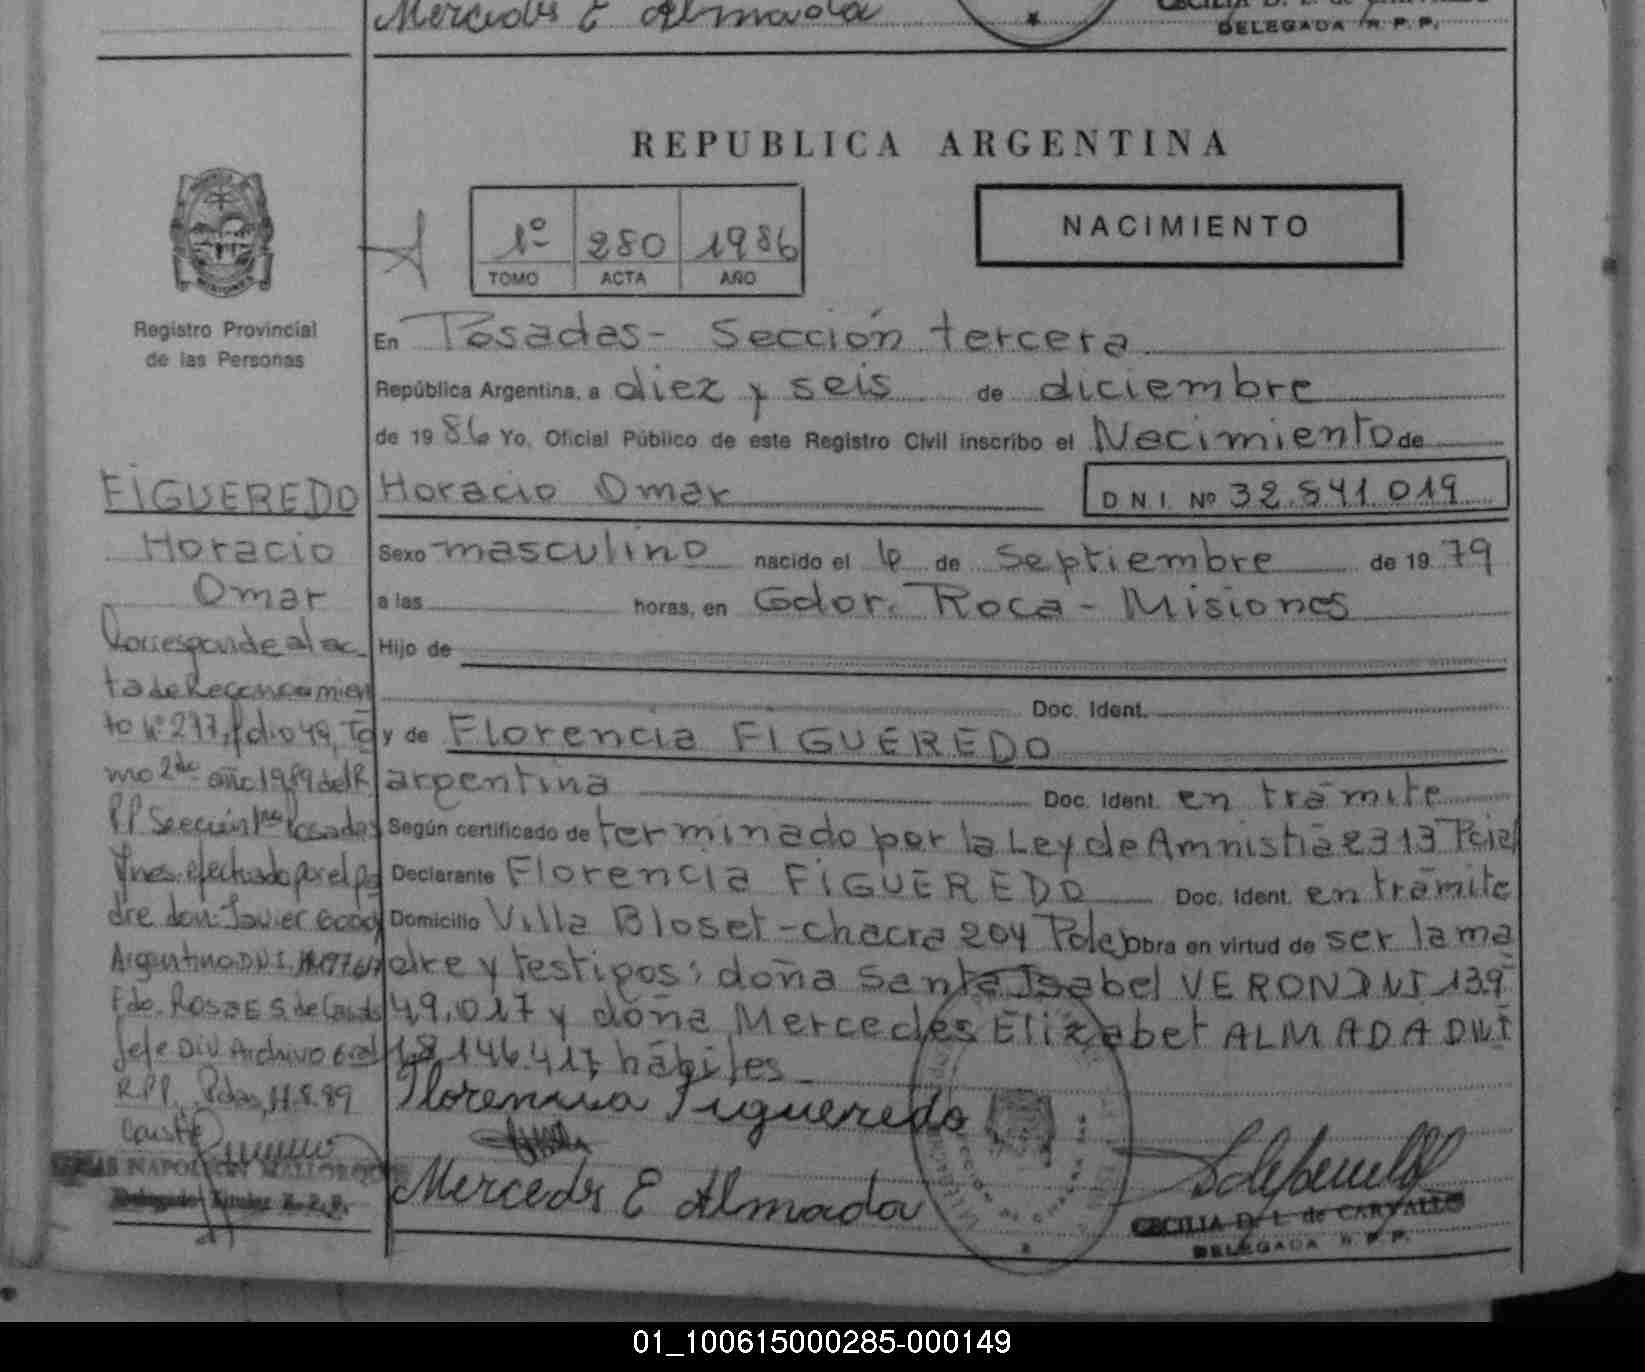 Mercedes E Almada
DELEGADA R. P. P.
REPUBLICA ARGENTINA
1º 280 1986
TOMO ACTA AÑO
NACIMIENTO
MISIONES
Registro Provincial
de las Personas
En Posadas - Sección tercera
República Argentina, a diez y seis de diciembre
de 1986 Yo, Oficial Público de este Registro Civil inscribo el Nacimiento de
Horacio Omar D N I. Nº 32.541.019
Sexo masculino nacido el 4 de Septiembre de 1979
a las horas, en Gdor. Roca - Misiones
Hijo de
Doc. Ident.
y de Florencia FIGUEREDO
argentina Doc. Ident. en trámite
Según certificado de terminado por la Ley de Amnistia 2313 Pcial
Declarante Florencia FIGUEREDO Doc. Ident. en trámite
Domicilio Villa Bloset - chacra 204 Pdas obra en virtud de ser la ma
dre y testigos: doña Santa Isabel VERON DNI 13.9
49.017 y doña Mercedes Elizabet ALMADA DNI
18.146.417 hábiles
Florencia Figueredo
Mercedes E Almada
CECILIA D. L. de CARVALLO
DELEGADA R. P. P.
FIGUEREDO
Horacio
Omar
Corresponde al ac
ta de Reconocimien
to Nº 277, folio 49, To
mo 2do año 1989 del R
PP Sección 1ra Posadas
Mnes. efectuado por el pa
dre don: Javier
Argentino D.N.I.
Fdo. Rosa E S. de
Jefe Div. Archivo Gral
R.P.P. Pdas, 11.8.89
Conste
01_100615000285-000149